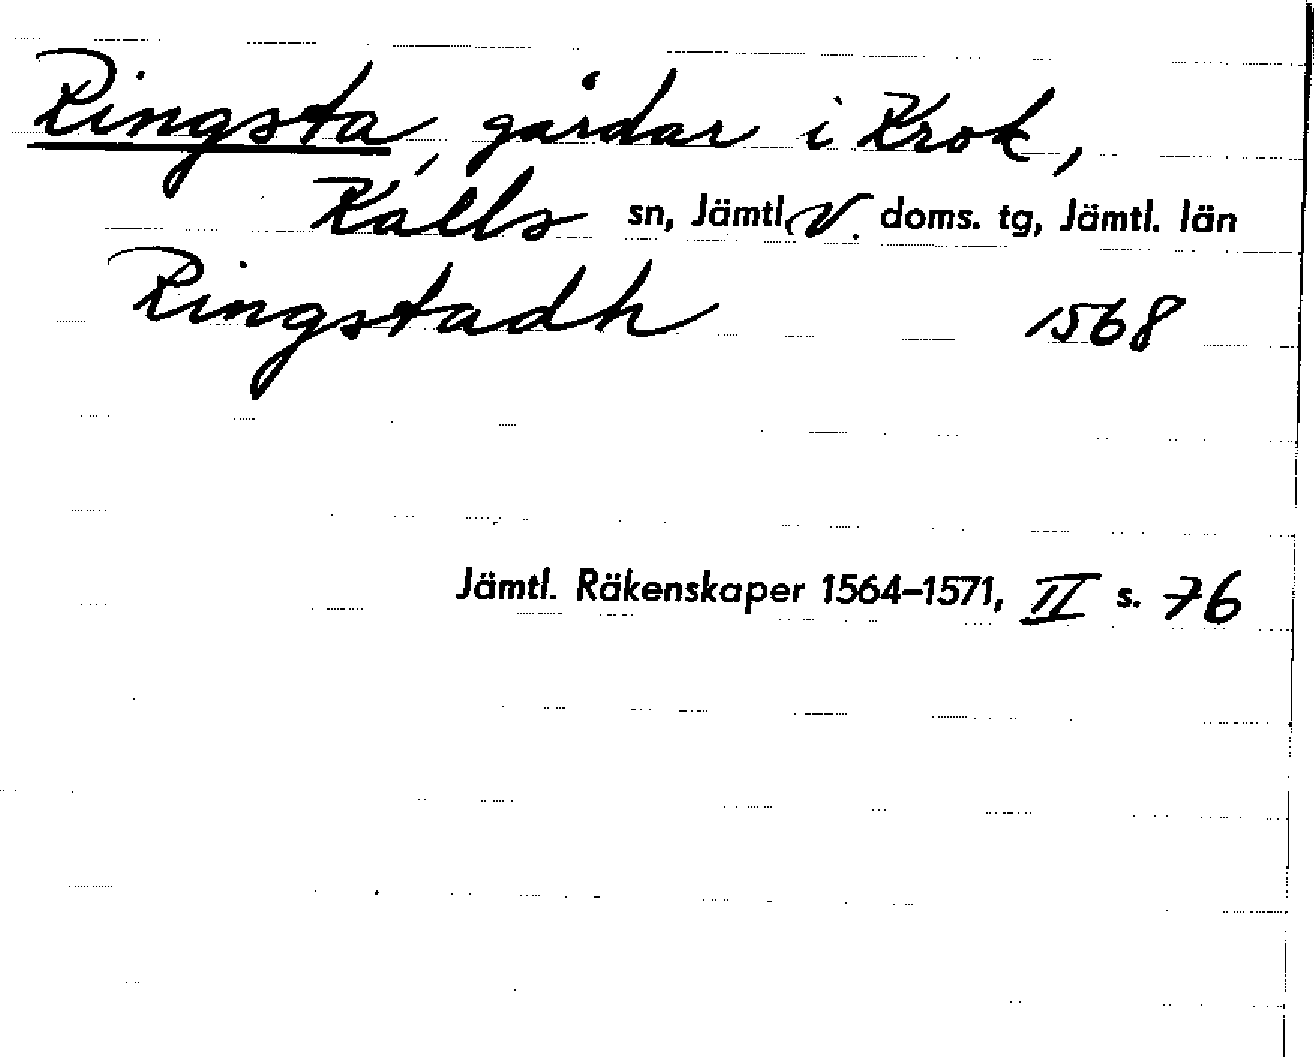 Ringsta, gårdar i Krok,
Kalls sn, Jämtl. V. doms. tg, Jämtl. län
Ringstadh 1568
Jämtl. Räkenskaper 1564–1571, II s. 76